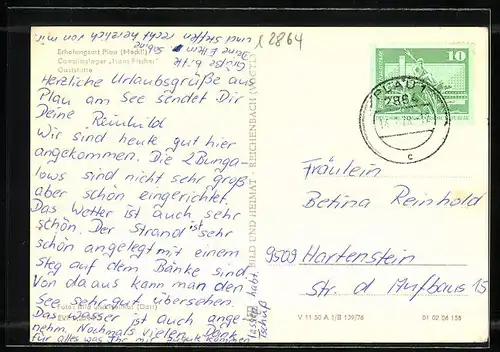 λ 2864
und Steffen recht herzlich von mir
Deine Eltern, Sabine
Grüße bitte
Erholungsort Plau (Meckl.)
Campinglager „Hans Fischer“
Gaststätte
Herzliche Urlaubsgrüße aus
Plau am See sendet Dir
Deine Reinhild
Wir sind heute gut hier
angekommen. Die 2 Bunga-
lows sind nicht sehr groß
aber schön eingerichtet.
Das Wetter ist auch sehr
schön. Der Strand ist sehr
schön angelegt mit einem
Steg auf dem Bänke sind.
Von da aus kann man den
See sehr gut übersehen.
Das Wasser ist auch ange-
nehm. Nochmals vielen Dank
für alles was Ihr mir
lassen habt.
Tschüß
BILD UND HEIMAT · REICHENBACH (VOGTL)
10
PLAU 1
2864
c
Fräulein
Betina Reinhold
9509 Hartenstein
Str. d Aufbaus 15
V 11 50 A 1/B 139/76
01 02 06 158